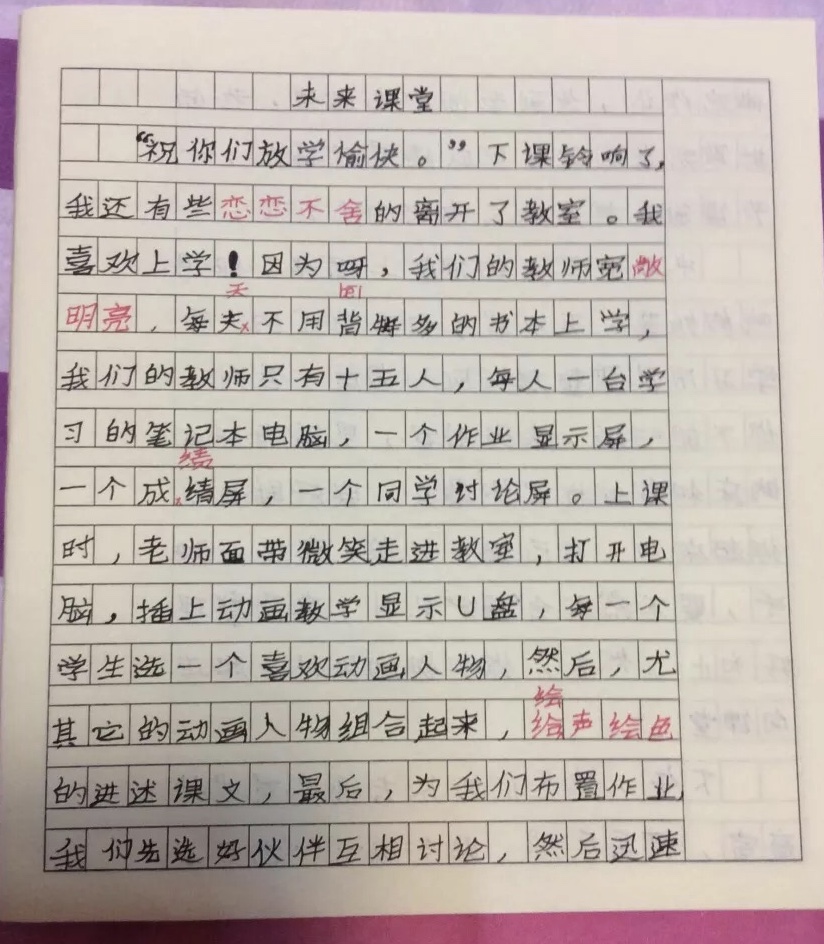 未来课堂
“祝你们放学愉快。”下课铃响了，
我还有些恋恋不舍的离开了教室。我
喜欢上学！因为呀，我们的教师宽敞
天
明亮，每夫不用背多的书本上学，
我们的教师只有十五人，每人一台学
习的笔记本电脑，一个作业显示屏，
绩
一个成绩屏，一个同学讨论屏。上课
时，老师面带微笑走进教室，打开电
脑，插上动画教学显示U盘，每一个
学生选一个喜欢动画人物，然后，尤
绘
其它的动画人物组合起来，绘声绘色
的进述课文，最后，为我们布置作业，
我们先选好伙伴互相讨论，然后迅速